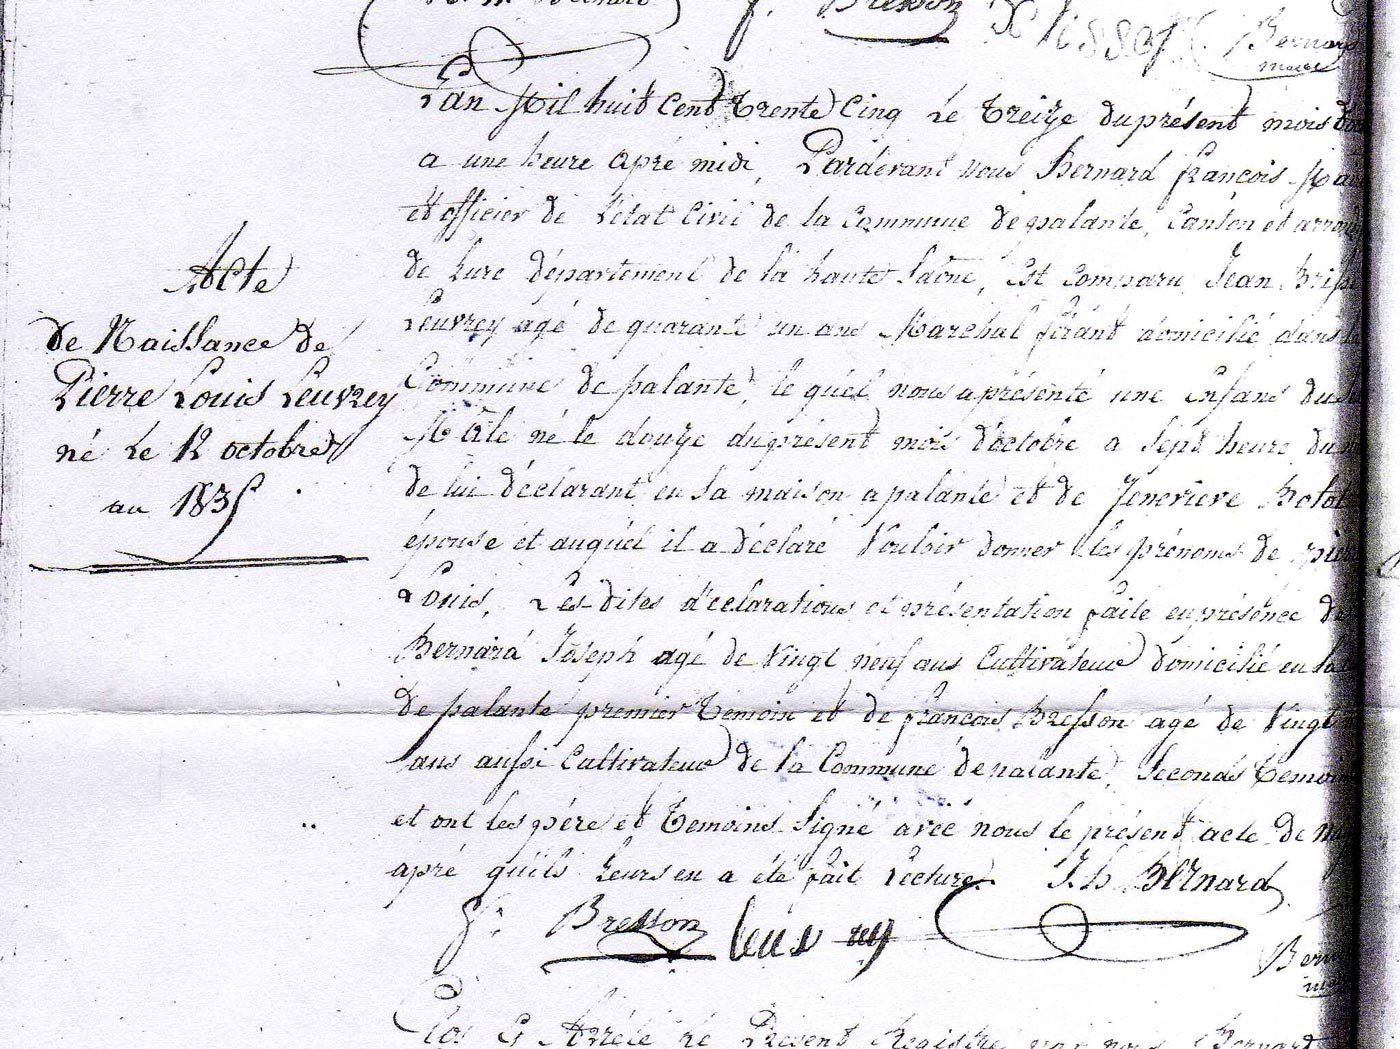 f. Bresson
Bernard
maire
L'an Mil huit Cent Trente Cinq Le Treize du présent mois
a une heure apré midi, Pardevant nous Bernard françois
et officier de L'état Civil de la Commune de palante, Canton et
de Lure département de la haute Saône, Est Comparu Jean
Leuvrey agé de quarante un ans Marechal ferant domicilié dans
Commune de palante, le quel nous a présenté une Enfans du
Mâle né le douze du présent mois d'octobre a Sept heure du
de lui déclarant en Sa maison a palante et de Jenevieve
épouse et auquel il a déclaré Vouloir donner les prénoms de
Louis, Les dites déclarations et présentation faite en présence de
Bernard Joseph agé de Vingt neuf ans Cultivateur domicilié en
de palante premier Temoin et de françois Bresson agé de Vingt
ans aussi Cultivateur de la Commune de palante, Seconds Temoin
et ont les pére et Temoins Signé avec nous le présent acte de
apré quils Leurs en a été fait Lecture. J. h BERnard
f. Bresson Leuvrey
Acte
de Naissance de
Pierre Louis Leuvrey
né Le 12 octobre
au 1835
Clos Et Arrêté le Présent Registre par nous Bernard